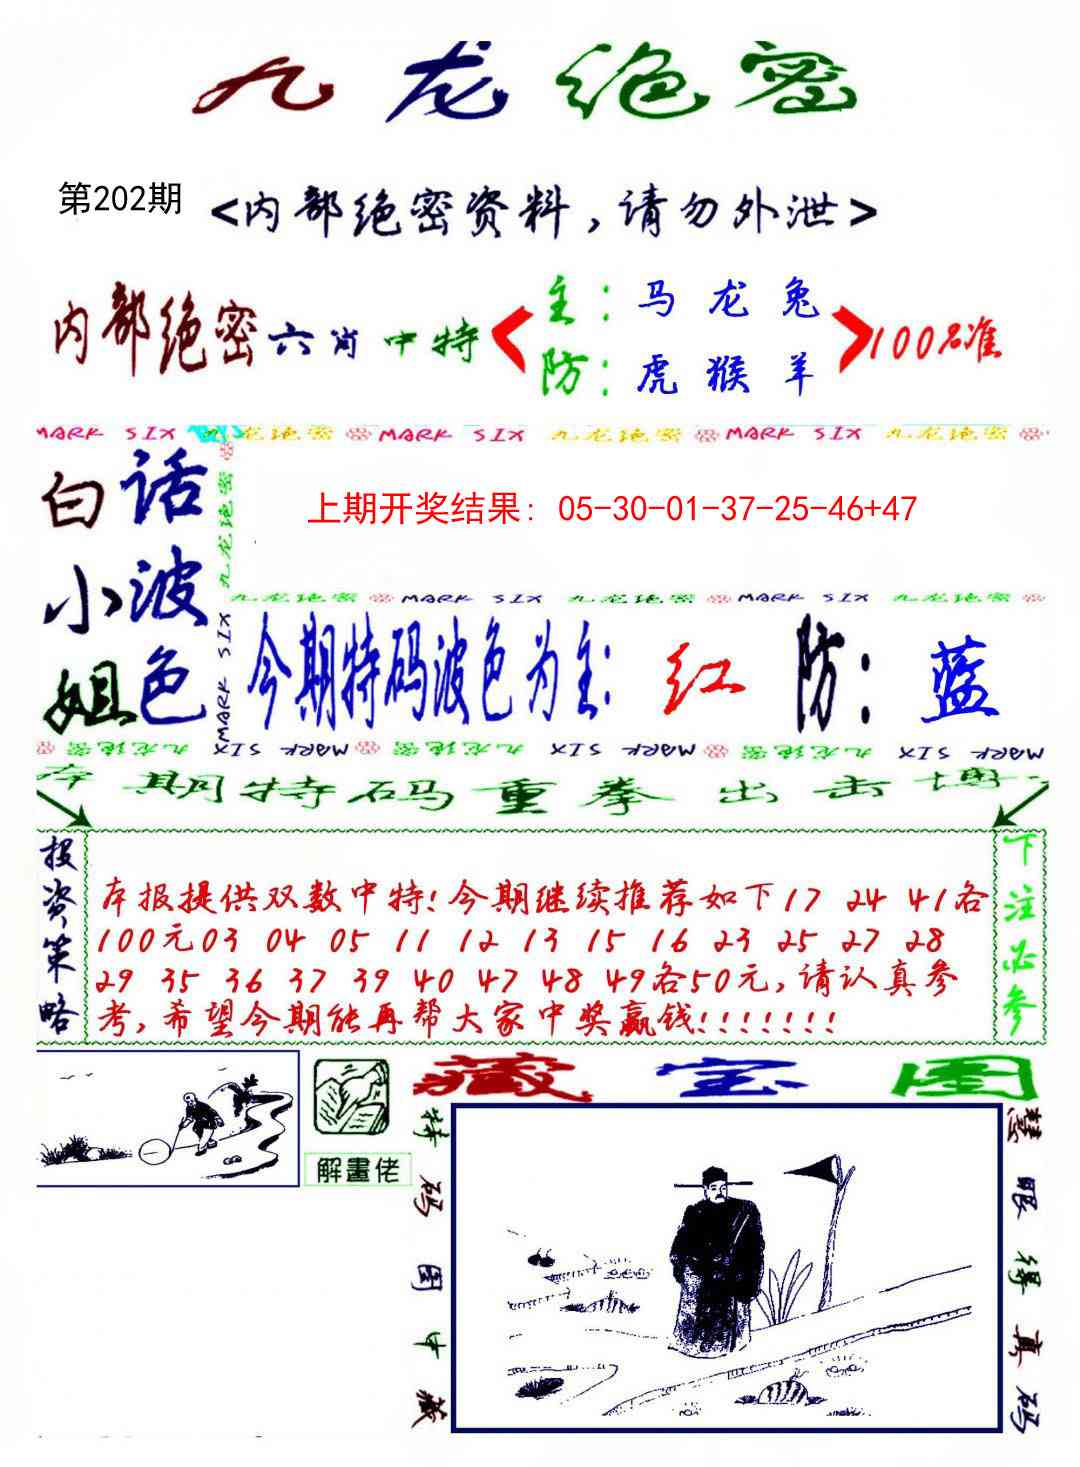 九龙绝密
第202期
<内部绝密资料,请勿外泄>
内部绝密六肖中特
主:马龙兔
防:虎猴羊
100%准
MARK SIX 九龙绝密 MARK SIX 九龙绝密 MARK SIX 九龙绝密
白话
小波
姐色
九龙绝密
MARK SIX
上期开奖结果: 05-30-01-37-25-46+47
九龙绝密 MARK SIX 九龙绝密 MARK SIX 九龙绝密
今期特码波色为主: 红 防: 蓝
九龙绝密 MARK SIX 九龙绝密 MARK SIX 九龙绝密 MARK SIX
本期特码重拳出击博
投资策略
本报提供双数中特!今期继续推荐如下17 24 41各
100元03 04 05 11 12 13 15 16 23 25 27 28
29 35 36 37 39 40 47 48 49各50元,请认真参
考,希望今期能再帮大家中奖赢钱!!!!!!!
下注必参
解畫佬
藏宝图
特码图中藏
慧眼得真码